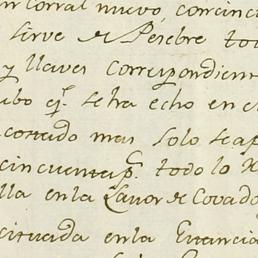 un corral nuevo, concinc
sirve de Pesebre todo
y llaves correspondient
ubo q.e se ha echo en el
corrido mas solo se ap
cincuenta p.s todo lo
lla en la Lavor de Covado
situada en la Estancia